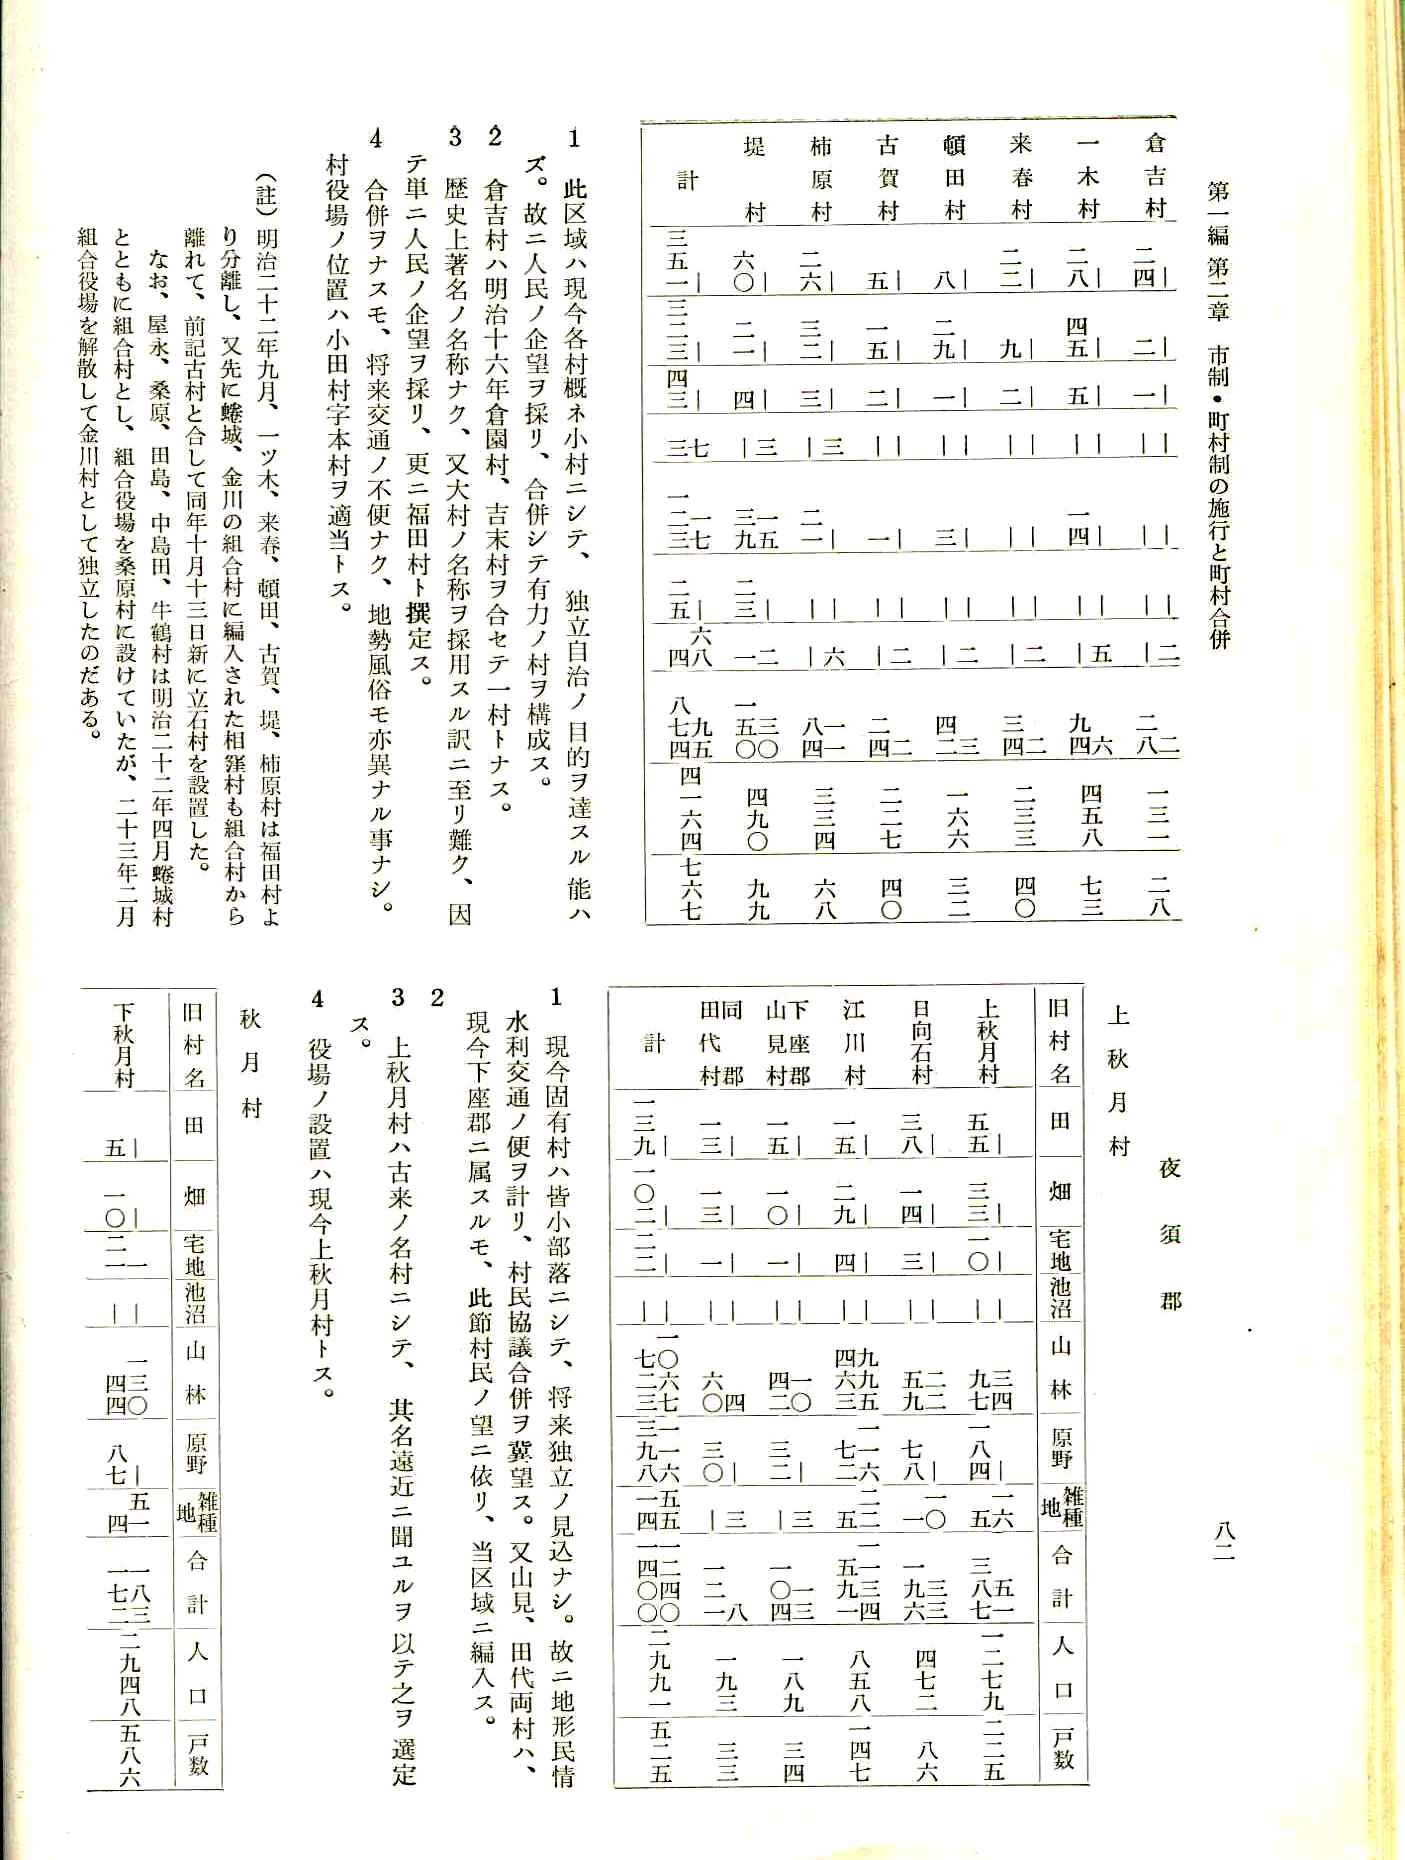 第一編 第二章 市制・町村制の施行と町村合併
八二
倉吉村 二四| 二| 一| || || || |二 二八二 一三一 二八
一木村 二八| 四五| 五| || 一四| || |五 九四六 四五八 七三
来春村 二二| 九| 二| || || || |二 三四二 二三三 四〇
頓田村 八| 二九| 一| || 三| || |二 四二三 一六六 三二
古賀村 五| 一五| 二| || 一| || |二 二四二 二二七 四〇
柿原村 二六| 三二| 三| |三 二一| || |六 八四一一 三三四 六八
堤村 六〇| 二一| 四| |三 三九一五 二三| 一二 一五〇三〇 四九〇 九九
計 三五一| 三二三| 四三| 三七 一二三一七 二五| 四六八 八七四九五 四一六四 七六七
1 此区域ハ現今各村概ネ小村ニシテ、独立自治ノ目的ヲ達スル能ハ
ズ。故ニ人民ノ企望ヲ採リ、合併シテ有力ノ村ヲ構成ス。
2 倉吉村ハ明治十六年倉園村、吉末村ヲ合セテ一村トナス。
3 歴史上著名ノ名称ナク、又大村ノ名称ヲ採用スル訳ニ至リ難ク、因
テ単ニ人民ノ企望ヲ採リ、更ニ福田村ト撰定ス。
4 合併ヲナスモ、将来交通ノ不便ナク、地勢風俗モ亦異ナル事ナシ。
村役場ノ位置ハ小田村字本村ヲ適当トス。
（註）明治二十二年九月、一ツ木、来春、頓田、古賀、堤、柿原村は福田村よ
り分離し、又先に蜷城、金川の組合村に編入された相窪村も組合村から
離れて、前記古村と合して同年十月十三日新に立石村を設置した。
なお、屋永、桑原、田島、中島田、牛鶴村は明治二十二年四月蜷城村
とともに組合村とし、組合役場を桑原村に設けていたが、二十三年二月
組合役場を解散して金川村として独立したのだある。
夜須郡
上秋月村
旧村名 田 畑 宅地 池沼 山林 原野 雑種地 合計 人口 戸数
上秋月村 五五| 三三| 一〇| || 九七三四 一八四| 一五六 三八七五一 一二七九 二二五
日向石村 三八| 一四| 三| || 五九二二 七八| 一一〇 一九六三三 四七二 八六
江川村 一五| 二九| 四| || 四六三九九五 一七二一六 二五二 一五九一一三四 八五八 一四七
下座郡山見村 一五| 一〇| 一| || 四二一〇 三二| |三 一〇四一三 一八九 三四
同郡田代村 一三| 一三| 一| || 六〇四 三〇| |三 一二一八 一九三 三三
計 一三九| 一〇二| 二二| || 七二三一〇六七 三九八一一六 一四五五 一四〇〇一二四〇 二九九一 五二五
1 現今固有村ハ皆小部落ニシテ、将来独立ノ見込ナシ。故ニ地形民情
水利交通ノ便ヲ計リ、村民協議合併ヲ冀望ス。又山見、田代両村ハ、
現今下座郡ニ属スルモ、此節村民ノ望ニ依リ、当区域ニ編入ス。
2
3 上秋月村ハ古来ノ名村ニシテ、其名遠近ニ聞ユルヲ以テ之ヲ選定
ス。
4 役場ノ設置ハ現今上秋月村トス。
秋月村
旧村名 田 畑 宅地 池沼 山林 原野 雑種地 合計 人口 戸数
下秋月村 五| 一〇| 二一一 || 四四一三〇 八七| 四五一 一七二一八三 二九四八 五八六